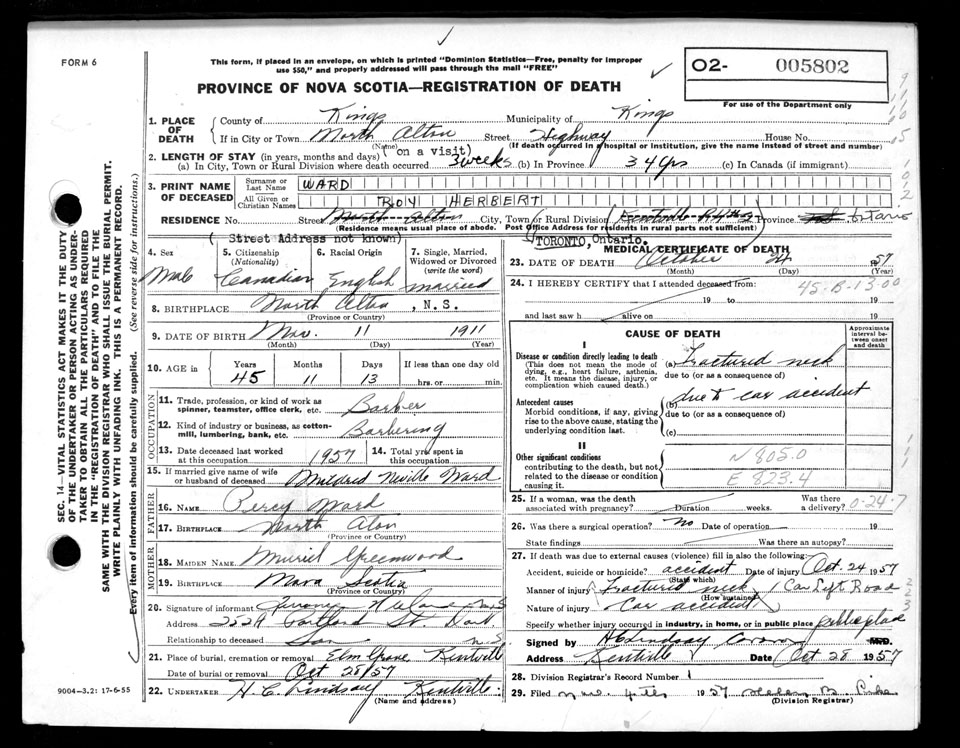 FORM 6
This form, if placed in an envelope, on which is printed "Dominion Statistics—Free, penalty for improper
use $50," and properly addressed will pass through the mail "FREE"
O2- 005802
For use of the Department only
PROVINCE OF NOVA SCOTIA—REGISTRATION OF DEATH
1. PLACE OF DEATH
County of Kings Municipality of Kings
If in City or Town North Alton Street Highway House No.
(Name) (If death occurred in a hospital or institution, give its name instead of street and number)
2. LENGTH OF STAY (in years, months and days) (on a visit)
(a) In City, Town or Rural Division where death occurred 3 weeks (b) In Province 34 yrs (c) In Canada (if immigrant)
3. PRINT NAME OF DECEASED
Surname or Last Name WARD
All Given or Christian Names ROY HERBERT
RESIDENCE No. Street North Alton City, Town or Rural Division Kentville Province Ontario
(Residence means usual place of abode. Post Office Address for residents in rural parts not sufficient)
(Street Address not known) TORONTO, Ontario.
4. Sex Male
5. Citizenship (Nationality) Canadian
6. Racial Origin English
7. Single, Married, Widowed or Divorced (write the word) married
8. BIRTHPLACE North Alton, N.S.
(Province or Country)
9. DATE OF BIRTH Nov. 11 1911
(Month) (Day) (Year)
10. AGE in Years Months Days If less than one day old
45 11 13 hrs. or min.
OCCUPATION
11. Trade, profession, or kind of work as spinner, teamster, office clerk, etc. Barber
12. Kind of industry or business, as cotton-mill, lumbering, bank, etc. Barbering
13. Date deceased last worked at this occupation 1957
14. Total yrs. spent in this occupation
15. If married give name of wife or husband of deceased Mildred Neville Ward
FATHER
16. NAME Percy Ward
17. BIRTHPLACE North Alton
(Province or Country)
MOTHER
18. MAIDEN NAME Muriel Greenwood
19. BIRTHPLACE Nova Scotia
(Province or Country)
20. Signature of informant
Address St. Dart. N.S.
Relationship to deceased Son
21. Place of burial, cremation or removal Elm Grove, Kentville
Date of burial or removal Oct 28/57
22. UNDERTAKER H. C. Lindsay Kentville
(Name and address)
9004—3.2: 17-6-55
SEC. 14—VITAL STATISTICS ACT MAKES IT THE DUTY
OF THE UNDERTAKER OR PERSON ACTING AS UNDER-
TAKER TO OBTAIN ALL THE PARTICULARS REQUIRED
IN THE "REGISTRATION OF DEATH" AND TO FILE THE
SAME WITH THE DIVISION REGISTRAR WHO SHALL ISSUE THE BURIAL PERMIT.
WRITE PLAINLY WITH UNFADING INK. THIS IS A PERMANENT RECORD.
Every item of information should be carefully supplied. (See reverse side for instructions.)
MEDICAL CERTIFICATE OF DEATH
23. DATE OF DEATH October 24 1957
(Month) (Day) (Year)
24. I HEREBY CERTIFY that I attended deceased from 45-B-13-00
19 to 19
and last saw h alive on 19
CAUSE OF DEATH
Approximate interval between onset and death
I
Disease or condition directly leading to death
(This does not mean the mode of dying, e.g., heart failure, asthenia, etc. It means the disease, injury, or complication which caused death.)
(a) Fractured neck
due to (or as a consequence of)
Antecedent causes
Morbid conditions, if any, giving rise to the above cause, stating the underlying condition last.
(b) due to car accident
due to (or as a consequence of)
(c)
II
Other significant conditions
contributing to the death, but not related to the disease or condition causing it.
N 805.0
E 823.4
25. If a woman, was the death associated with pregnancy? Duration weeks. Was there a delivery?
0-24-7
26. Was there a surgical operation? no Date of operation 19
State findings Was there an autopsy?
27. If death was due to external causes (violence) fill in also the following:
Accident, suicide or homicide? accident Date of injury Oct. 24 1957
(State which)
Manner of injury Fractured neck Car Left Road
(How sustained)
Nature of injury Car accident
Specify whether injury occurred in industry, in home, or in public place public place
Signed by Lindsay Coroner M.D.
Address Kentville Date Oct 28 1957
28. Division Registrar's Record Number 1
29. Filed Nov. 4th 1957 Helen B.
(Division Registrar)